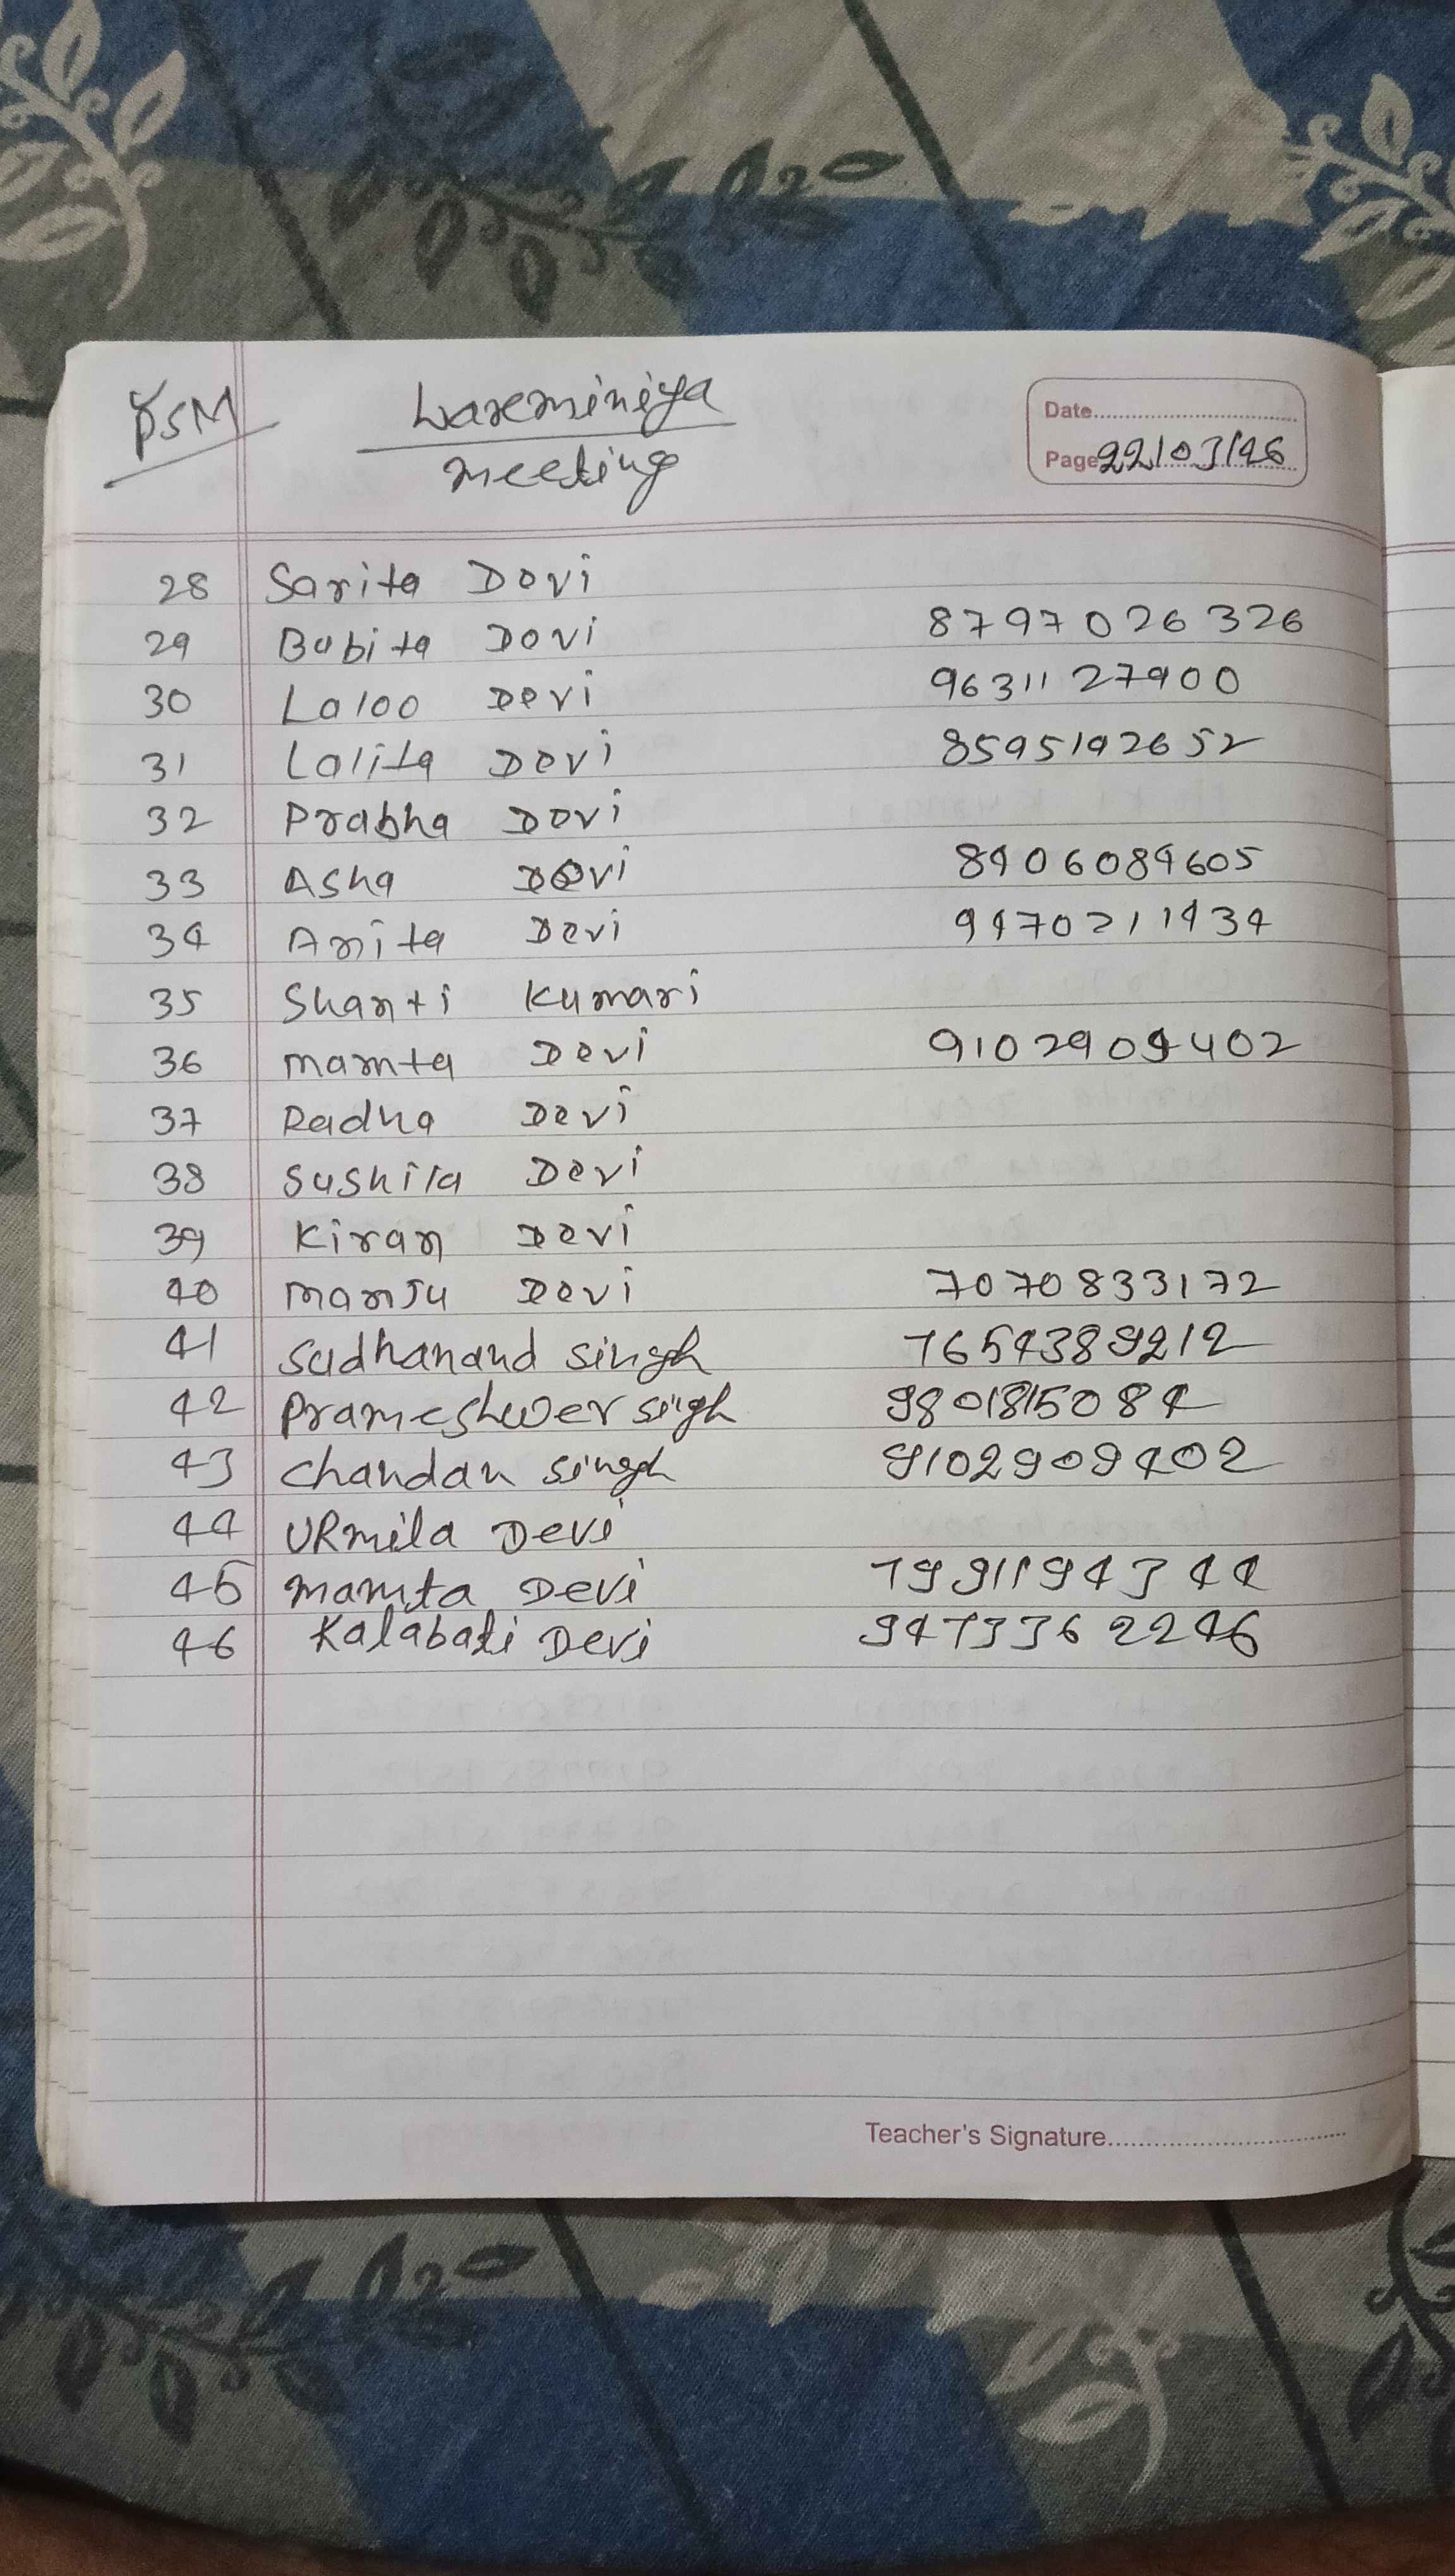 PSM
Laxminiya
meeting
Date
Page 22/03/26
28 Sarita Devi
29 Babita Devi 8797026326
30 Laloo Devi 9631127900
31 Lalita Devi 8595192652
32 Prabha Devi
33 Asha Devi 8406084605
34 Anita Devi 9470211434
35 Shanti Kumari
36 mamta Devi 9102909402
37 Radha Devi
38 Sushila Devi
39 Kiran Devi
40 manju Devi 7070833172
41 Sadhanand Singh 7654389212
42 Prameshwer Singh 9801815084
43 Chandan Singh 9102909402
44 URmila Devi
45 Mamta Devi 7991194344
46 Kalabati Devi 9473362246
Teacher's Signature